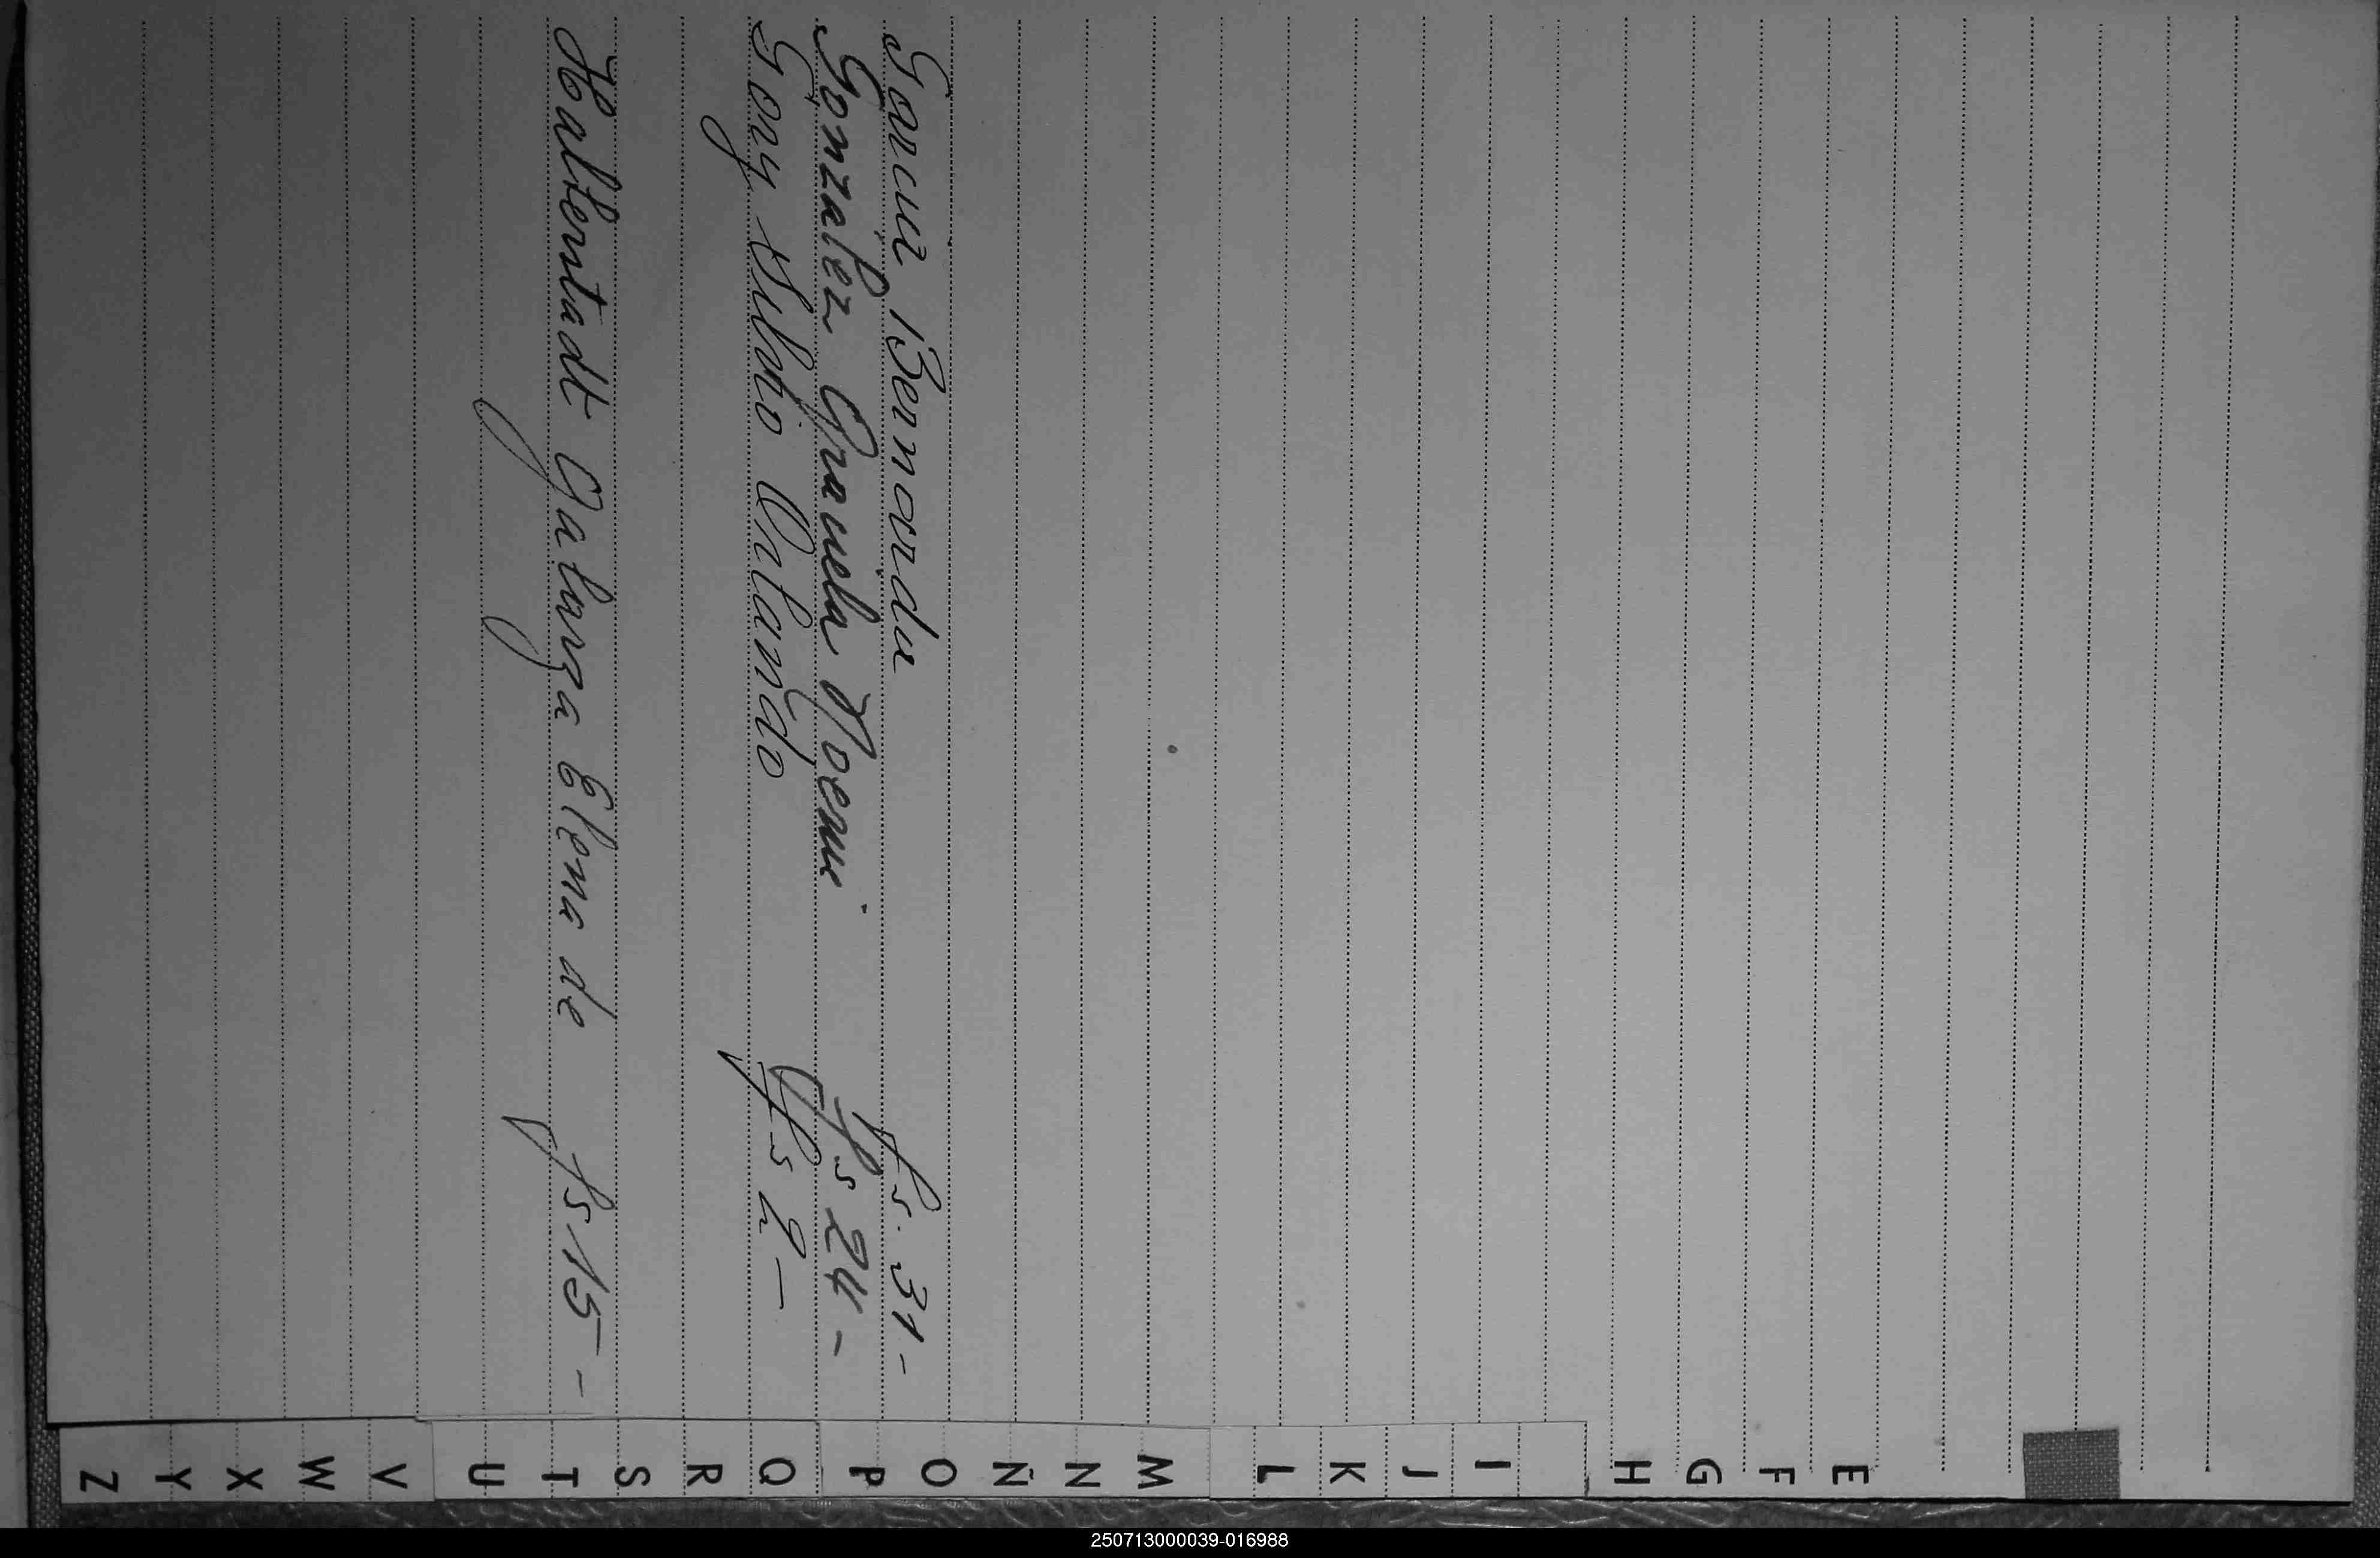 Garcia Bernarda fs. 31-
Gonzalez Graciela Noemi fs 24-
Gory Silvio Orlando fs 2-
Halterntadt Galarza Elena de fs 15-
E
F
G
H
I
J
K
L
M
N
Ñ
O
P
Q
R
S
T
U
V
W
X
Y
Z
250713000039-016988